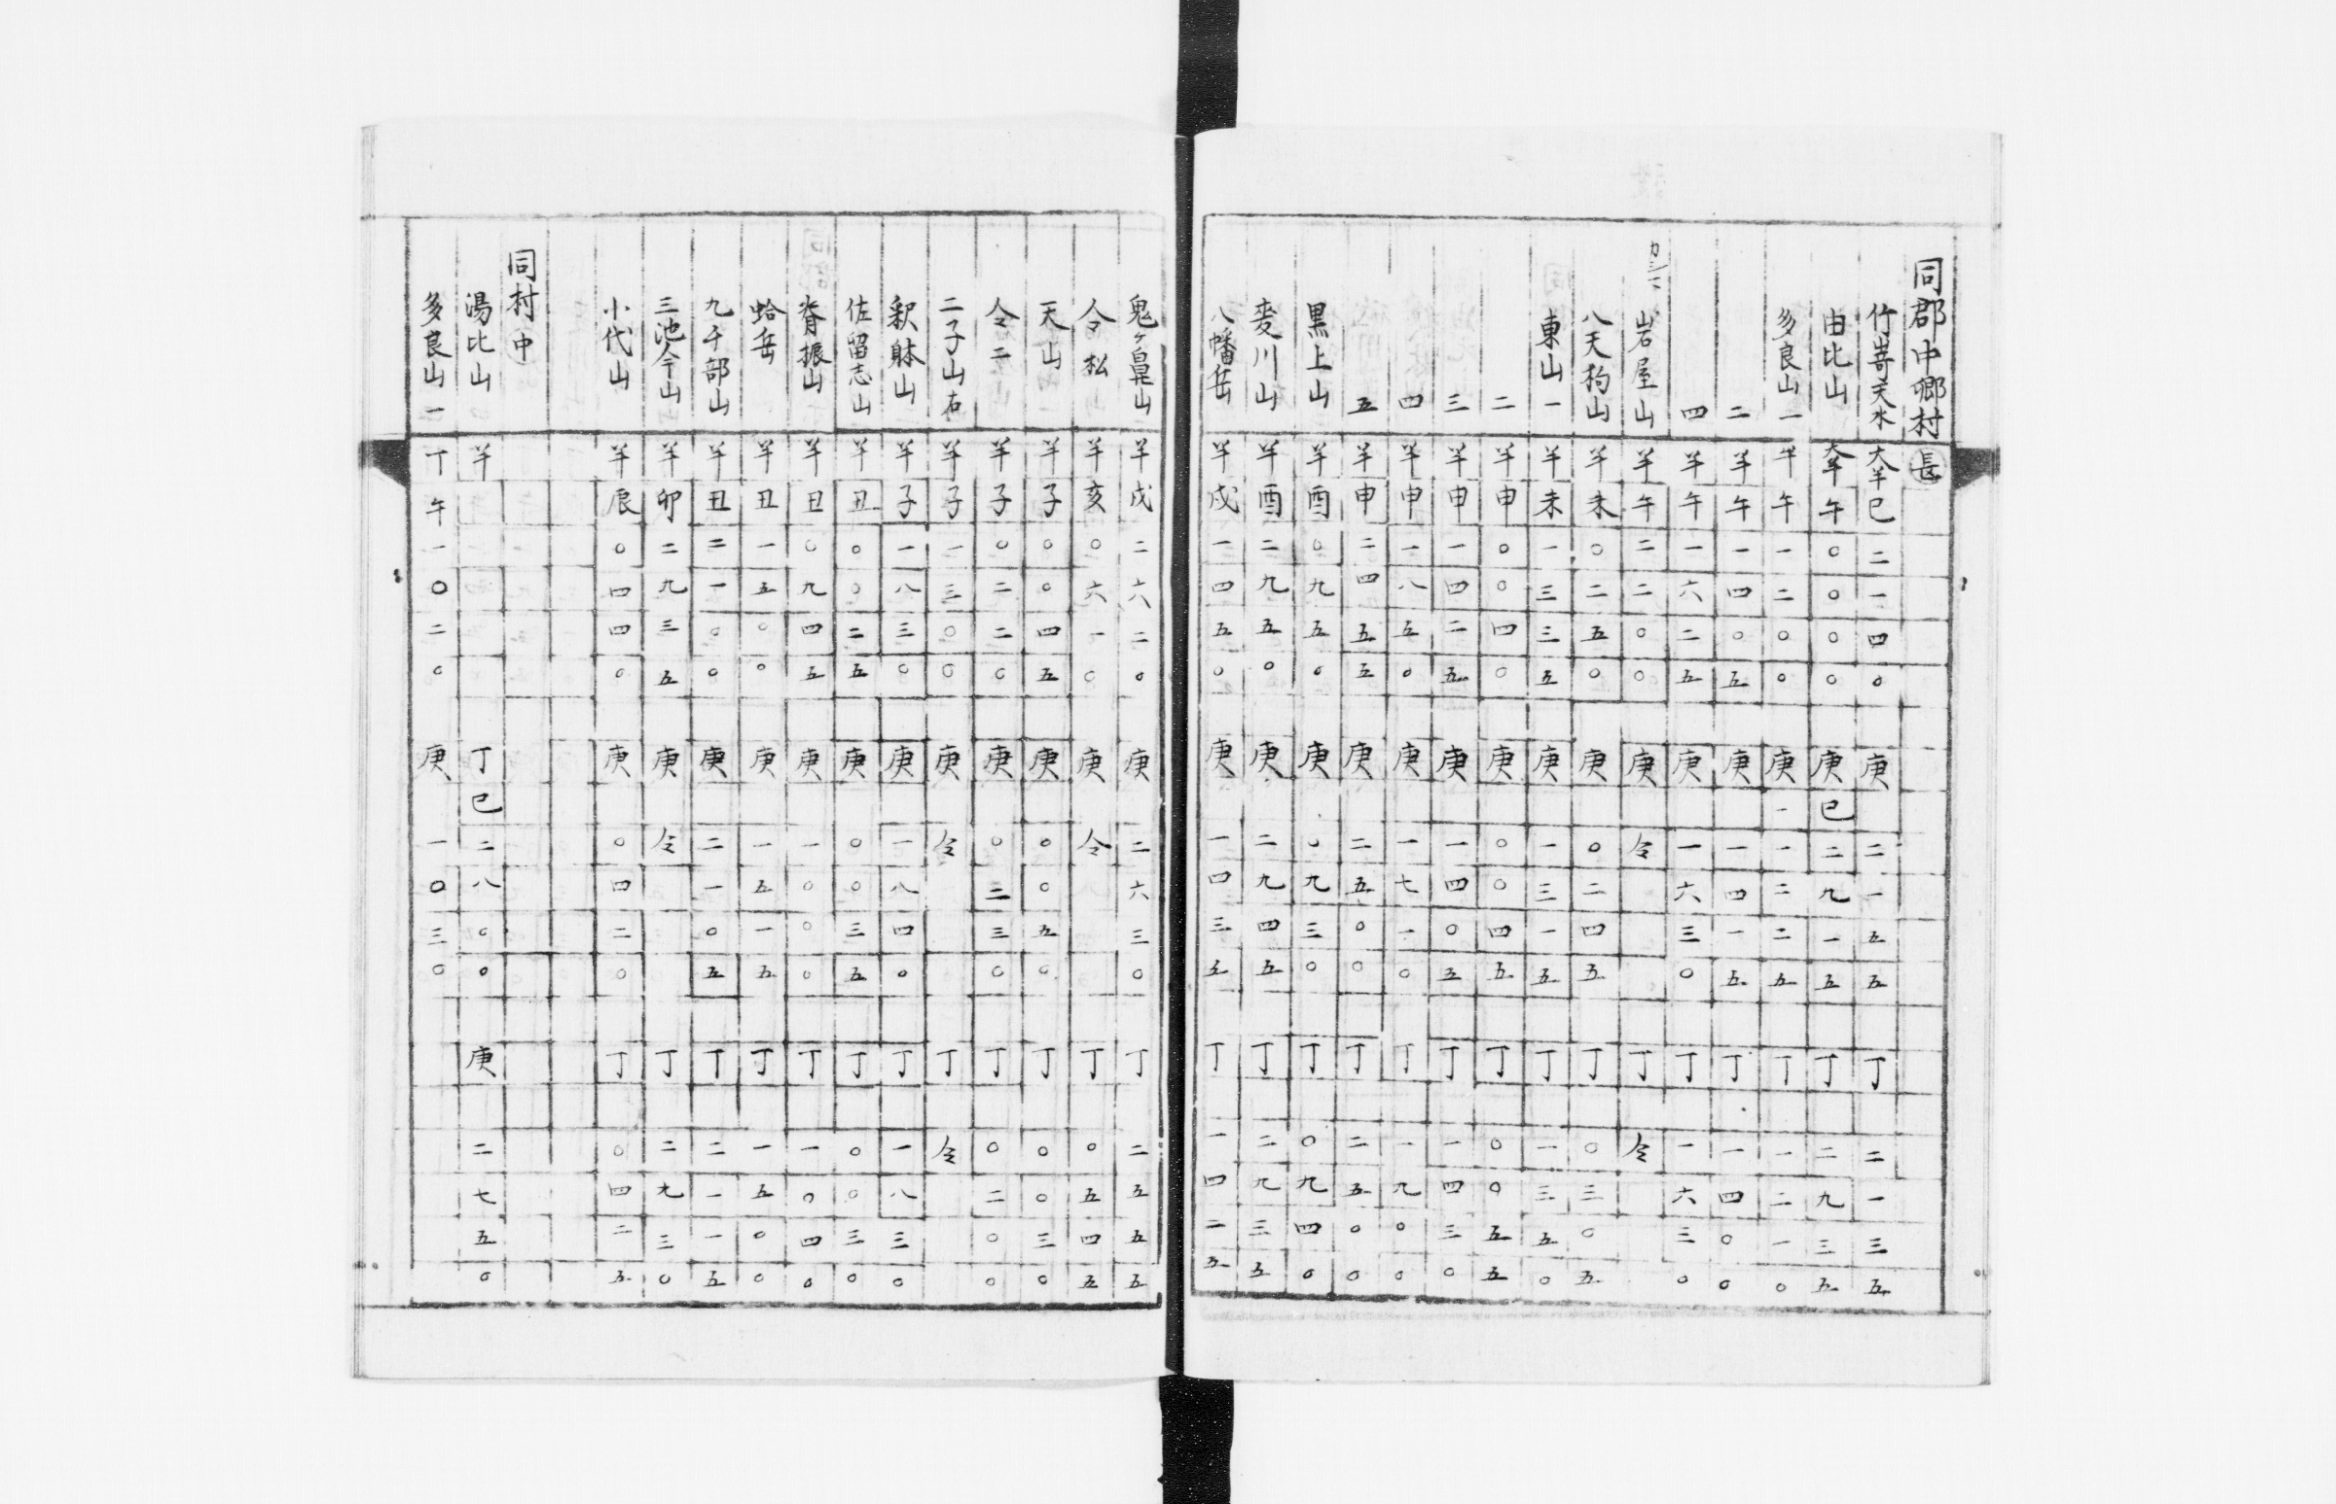 同郡中郷村 長
竹嵜天水 大半 巳 二一四〇 庚 二一五五 丁 二一三五
由比山 大半 午 〇〇〇〇 庚 巳 二九一五 丁 二九三五
多良山一 半 午 一二〇〇 庚 一一二二五 丁 一二一〇
二 半 午 一四〇五 庚 一四一五 丁 一四〇〇
四 半 午 一六二五 庚 一六三〇 丁 一六三〇
岩屋山 半 午 二二〇〇 庚 仝 丁 仝
八天狗山 半 未 〇二五〇 庚 〇二四五 丁 〇三〇五
東山一 半 未 一三三五 庚 一三一五 丁 一三五〇
二 半 申 〇〇四〇 庚 〇〇四五 丁 〇〇五五
三 半 申 一四二五 庚 一四〇五 丁 一四三〇
四 半 申 一八五〇 庚 一七一〇 丁 一九〇〇
五 半 申 二四五五 庚 二五〇〇 丁 二五〇〇
黒上山 半 酉 〇九五〇 庚 〇九三〇 丁 〇九四〇
麦川山 半 酉 二九五〇 庚 二九四五 丁 二九三五
八幡岳 半 戌 一四五〇 庚 一四三五 丁 一四二五
鬼ヶ鼻山 半 戌 二六二〇 庚 二六三〇 丁 二五五五
仝松 半 亥 〇六一〇 庚 仝 丁 〇五四五
天山 半 子 〇〇四五 庚 〇〇五〇 丁 〇〇三〇
仝二 半 子 〇二二〇 庚 〇二三〇 丁 〇二〇〇
二子山右 半 子 一三〇〇 庚 仝 丁 仝
釈躰山 半 子 一八三〇 庚 一八四〇 丁 一八三〇
佐留志山 半 丑 〇〇二五 庚 〇〇三五 丁 〇〇三〇
脊振山 半 丑 〇九四五 庚 一〇〇〇 丁 一〇四〇
蛤岳 半 丑 一五〇〇 庚 一五一五 丁 一五〇〇
九千部山 半 丑 二一〇〇 庚 二一〇五 丁 二一一五
三池今山 半 卯 二九三五 庚 仝 丁 二九三〇
小代山 半 辰 〇四四〇 庚 〇四二〇 丁 〇四二五
同村 中
湯比山 半 丁 巳 二八〇〇 庚 二七五〇
多良山一 丁 午 一〇二〇 庚 一〇三〇